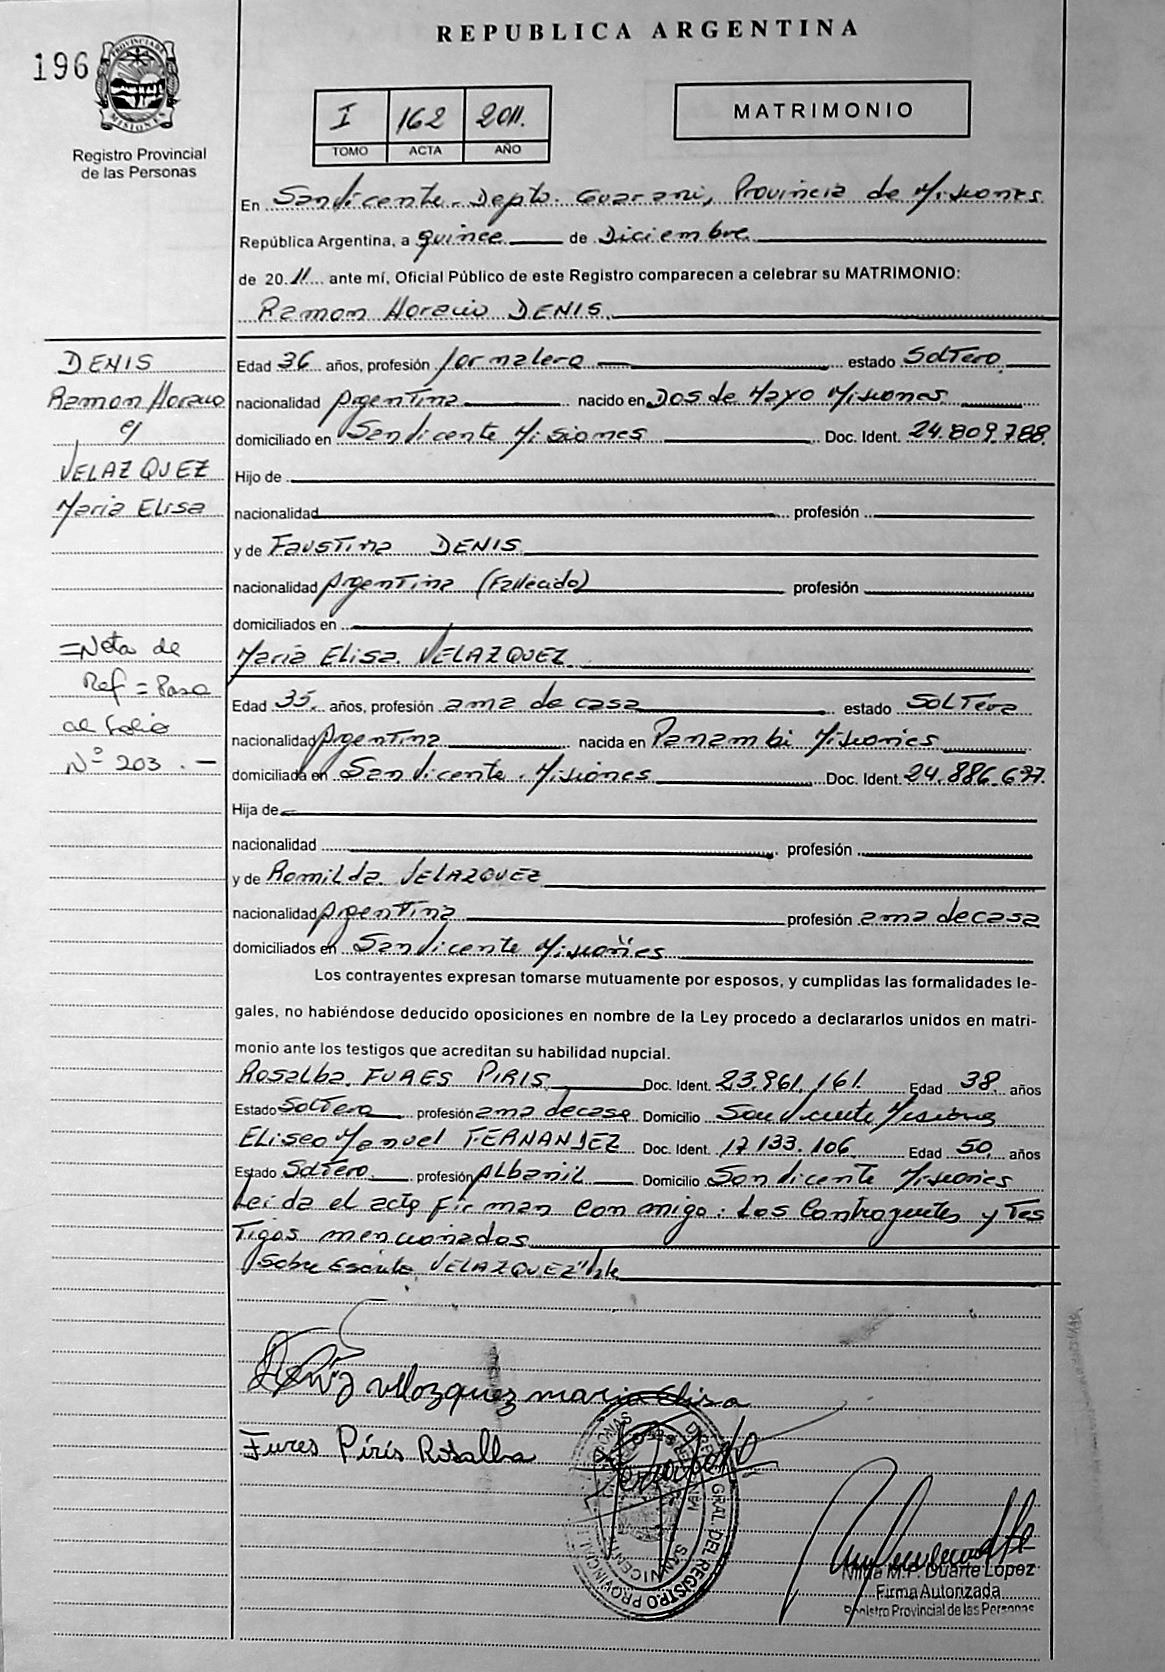 REPUBLICA ARGENTINA
196
PROVINCIA DE MISIONES
Registro Provincial
de las Personas
I 162 2011.
TOMO ACTA AÑO
MATRIMONIO
En San Vicente - Depto. Guarani, Provincia de Misiones
República Argentina, a quince de Diciembre
de 2011 ante mí, Oficial Público de este Registro comparecen a celebrar su MATRIMONIO:
Ramon Horacio DENIS
DENIS
Ramon Horacio
y
VELAZQUEZ
Maria Elisa
Edad 36 años, profesión Jornalero estado Soltero
nacionalidad Argentina nacido en Dos de Mayo Misiones
domiciliado en San Vicente Misiones Doc. Ident. 24.809.788
Hijo de
nacionalidad profesión
y de Faustina DENIS
nacionalidad Argentina (Fallecido) profesión
domiciliados en
Maria Elisa VELAZQUEZ
=Nota de
Ref = Pasa
al folio
Nº 203 . -
Edad 35 años, profesión ama de casa estado Soltera
nacionalidad Argentina nacida en Panambi Misiones
domiciliada en San Vicente - Misiones Doc. Ident. 24.886.697
Hija de
nacionalidad profesión
y de Romilda VELAZQUEZ
nacionalidad Argentina profesión ama de casa
domiciliados en San Vicente Misiones
Los contrayentes expresan tomarse mutuamente por esposos, y cumplidas las formalidades le-
gales, no habiéndose deducido oposiciones en nombre de la Ley procedo a declararlos unidos en matri-
monio ante los testigos que acreditan su habilidad nupcial.
Rosalba FURES PIRIS Doc. Ident. 23.961.161 Edad 38 años
Estado Soltera profesión ama de casa Domicilio San Vicente Misiones
Eliseo Manuel FERNANDEZ Doc. Ident. 17.133.106 Edad 50 años
Estado Soltero profesión Albanil Domicilio San Vicente Misiones
Leida el acta firman conmigo: Los Contrayentes y Tes
Tigos mencionados
Sobre Escrito VELAZQUEZ "Vale
Velozquez maria Elisa
Fures Piris Rosalba
DIREC. GRAL. DEL REGISTRO PROVINCIAL
SAN VICENTE
Nilda M.P. Duarte López
Firma Autorizada
Registro Provincial de las Personas